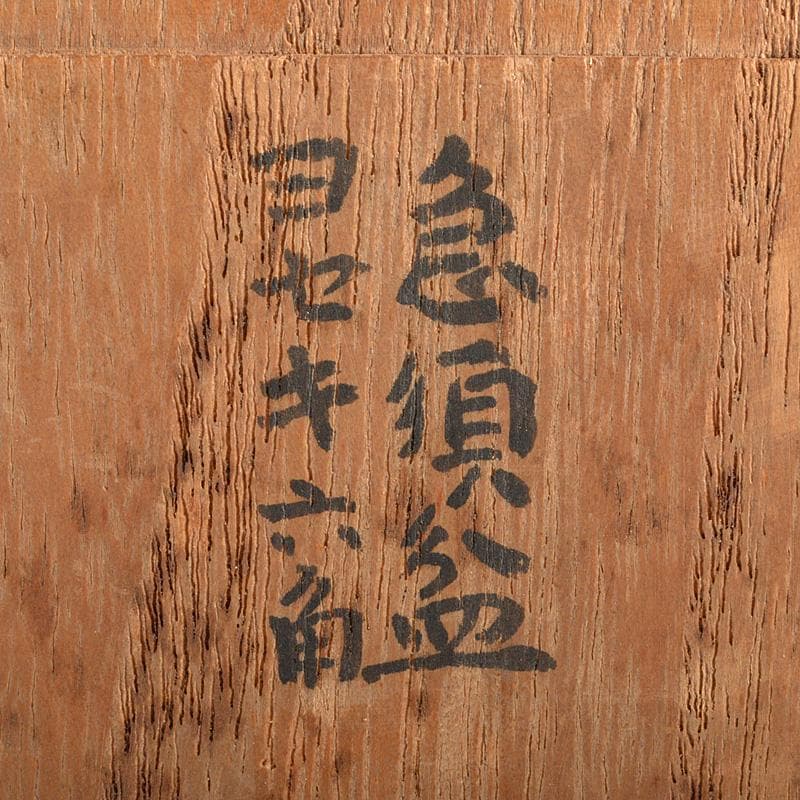 急須盆
ヨセキ六角